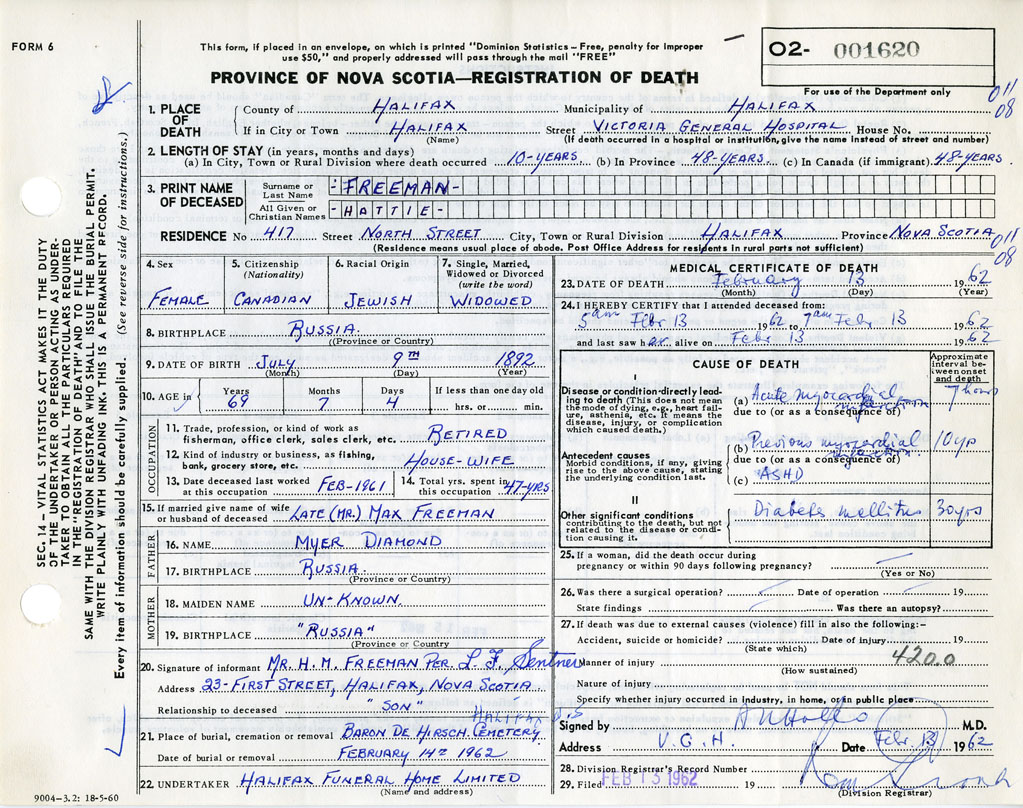 FORM 6
This form, if placed in an envelope, on which is printed "Dominion Statistics – Free, penalty for improper
use $50," and properly addressed will pass through the mail "FREE"
O2- 001620
For use of the Department only
PROVINCE OF NOVA SCOTIA—REGISTRATION OF DEATH
011
08
1. PLACE OF DEATH
County of HALIFAX Municipality of HALIFAX
If in City or Town HALIFAX Street VICTORIA GENERAL HOSPITAL House No.
(Name) (If death occurred in a hospital or institution, give the name instead of street and number)
2. LENGTH OF STAY (in years, months and days)
(a) In City, Town or Rural Division where death occurred 10-YEARS (b) In Province 48-YEARS. (c) In Canada (if immigrant) 48-YEARS.
3. PRINT NAME OF DECEASED
Surname or Last Name - FREEMAN -
All Given or Christian Names - HATTIE -
RESIDENCE No 417 Street NORTH STREET City, Town or Rural Division HALIFAX Province NOVA SCOTIA
(Residence means usual place of abode. Post Office Address for residents in rural parts not sufficient)
011
08
4. Sex FEMALE
5. Citizenship (Nationality) CANADIAN
6. Racial Origin JEWISH
7. Single, Married, Widowed or Divorced (write the word) WIDOWED
8. BIRTHPLACE RUSSIA.
(Province or Country)
9. DATE OF BIRTH July 9TH 1892
(Month) (Day) (Year)
10. AGE in Years 69 Months 7 Days 4 If less than one day old hrs. or min.
OCCUPATION
11. Trade, profession, or kind of work as
fisherman, office clerk, sales clerk, etc. RETIRED
12. Kind of industry or business, as fishing,
bank, grocery store, etc. HOUSE-WIFE
13. Date deceased last worked at this occupation FEB-1961
14. Total yrs. spent in this occupation 47-YRS
15. If married give name of wife
or husband of deceased LATE (MR.) MAX FREEMAN
FATHER
16. NAME MYER DIAMOND
17. BIRTHPLACE RUSSIA.
(Province or Country)
MOTHER
18. MAIDEN NAME UN-KNOWN.
19. BIRTHPLACE "RUSSIA"
(Province or Country
20. Signature of informant MR. H. M. FREEMAN PER. L. F. Sentner
Address 23-FIRST STREET, HALIFAX, NOVA SCOTIA
Relationship to deceased "SON"
HALIFAX
21. Place of burial, cremation or removal BARON DE HIRSCH. CEMETERY
Date of burial or removal FEBRUARY 14TH 1962
22. UNDERTAKER HALIFAX FUNERAL HOME LIMITED
(Name and address)
9004–3.2: 18-5-60
MEDICAL CERTIFICATE OF DEATH
23. DATE OF DEATH February 13 1962
(Month) (Day) (Year)
24. I HEREBY CERTIFY that I attended deceased from:
5 am Febr 13 1962 to 7 am Febr 13 1962
and last saw her alive on Febr 13 1962
CAUSE OF DEATH
Approximate interval between onset and death
I
Disease or condition directly leading to death (This does not mean the mode of dying, e.g., heart failure, asthenia, etc. It means the disease, injury, or complication which caused death.)
(a) Acute myocardial infarction 7 hours
due to (or as a consequence of)
Antecedent causes
Morbid conditions, if any, giving rise to the above cause, stating the underlying condition last.
(b) Previous myocardial infarction 10 yrs
due to (or as a consequence of)
(c) ASHD
II
Other significant conditions
contributing to the death, but not related to the disease or condition causing it.
Diabetes mellitus 30 yrs
25. If a woman, did the death occur during
pregnancy or within 90 days following pregnancy?
(Yes or No)
26. Was there a surgical operation? Date of operation 19
State findings Was there an autopsy?
27. If death was due to external causes (violence) fill in also the following:–
Accident, suicide or homicide? Date of injury 19
(State which)
420.0
Manner of injury
(How sustained)
Nature of injury
Specify whether injury occurred in industry, in home, or in public place
Signed by M.D.
Address V.G.H. Date Febr. 13 1962
28. Division Registrar's Record Number
29. Filed FEB 15 1962 19
(Division Registrar)
SEC. 14 – VITAL STATISTICS ACT MAKES IT THE DUTY
OF THE UNDERTAKER OR PERSON ACTING AS UNDER-
TAKER TO OBTAIN ALL THE PARTICULARS REQUIRED
IN THE "REGISTRATION OF DEATH" AND TO FILE THE
SAME WITH THE DIVISION REGISTRAR WHO SHALL ISSUE THE BURIAL PERMIT.
WRITE PLAINLY WITH UNFADING INK. THIS IS A PERMANENT RECORD.
Every item of information should be carefully supplied. (See reverse side for instructions.)